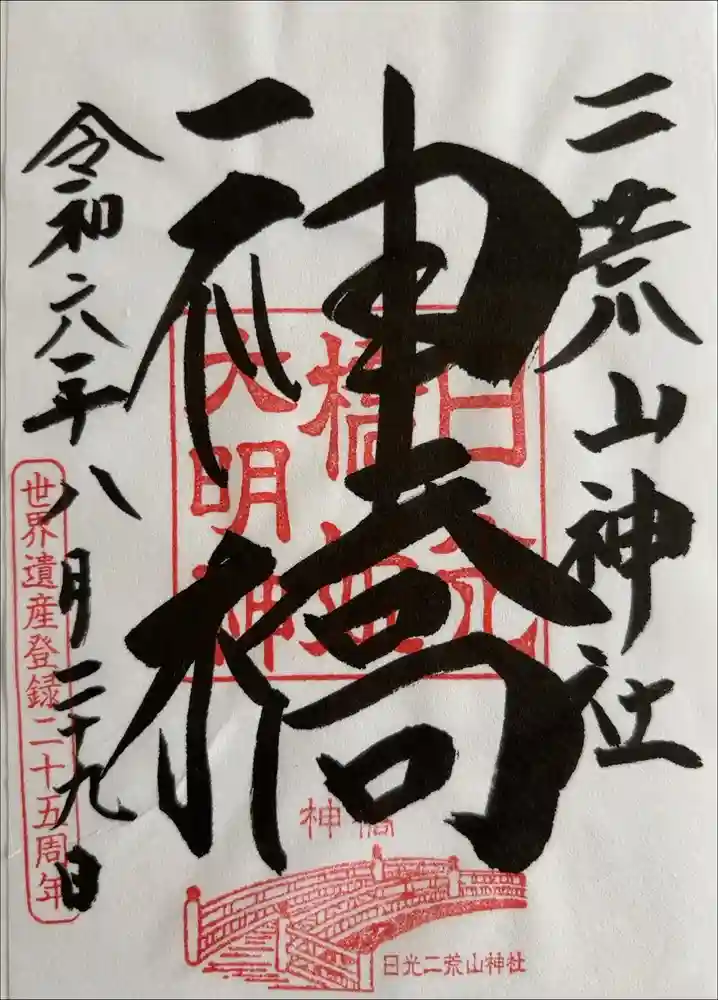 二荒山神社
神橋
令和六年八月二十九日
日光
橋姫
大明神
世界遺産登録二十五周年
神橋
日光二荒山神社